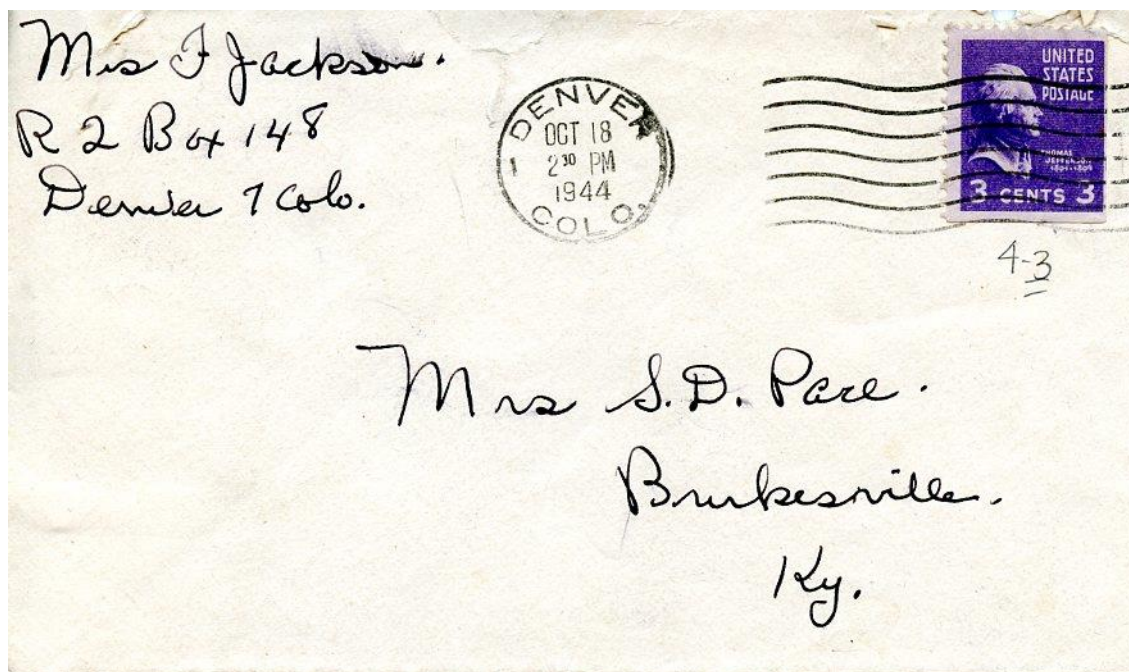 Mrs F Jackson.
R 2 Box 148
Denver 7 Colo.
DENVER
1
OCT 18
2 30 PM
1944
COLO.
UNITED
STATES
POSTAGE
THOMAS
JEFFERSON
1801-1809
3 CENTS 3
4-3
Mrs S. D. Pace.
Burkesville.
Ky.